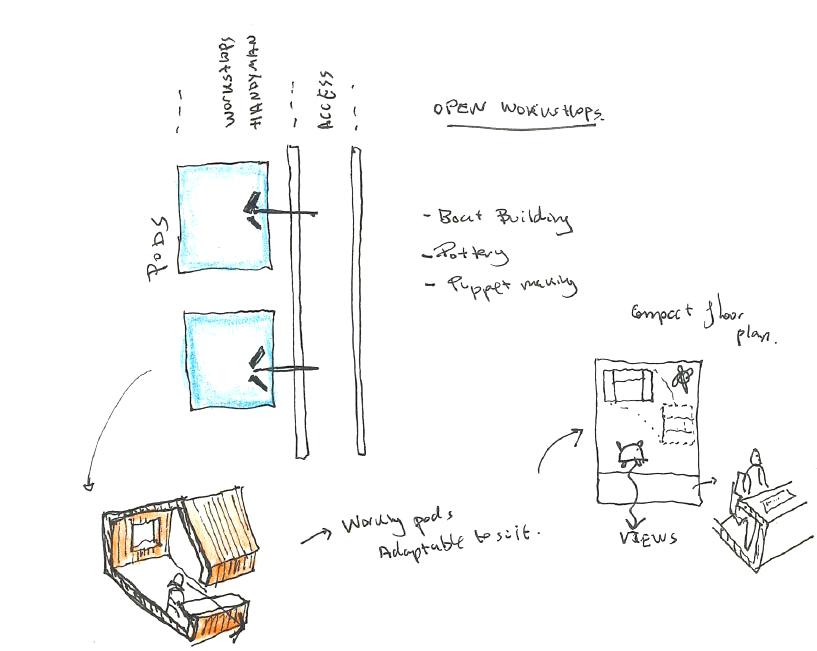 WORKSHOPS
HANDYMAN
ACCESS
OPEN WORKWSHOPS.
PODS
- Boat Building
- Pottery
- Puppet making
Compact floor
plan.
Working pods
Adaptable to suit.
VIEWS